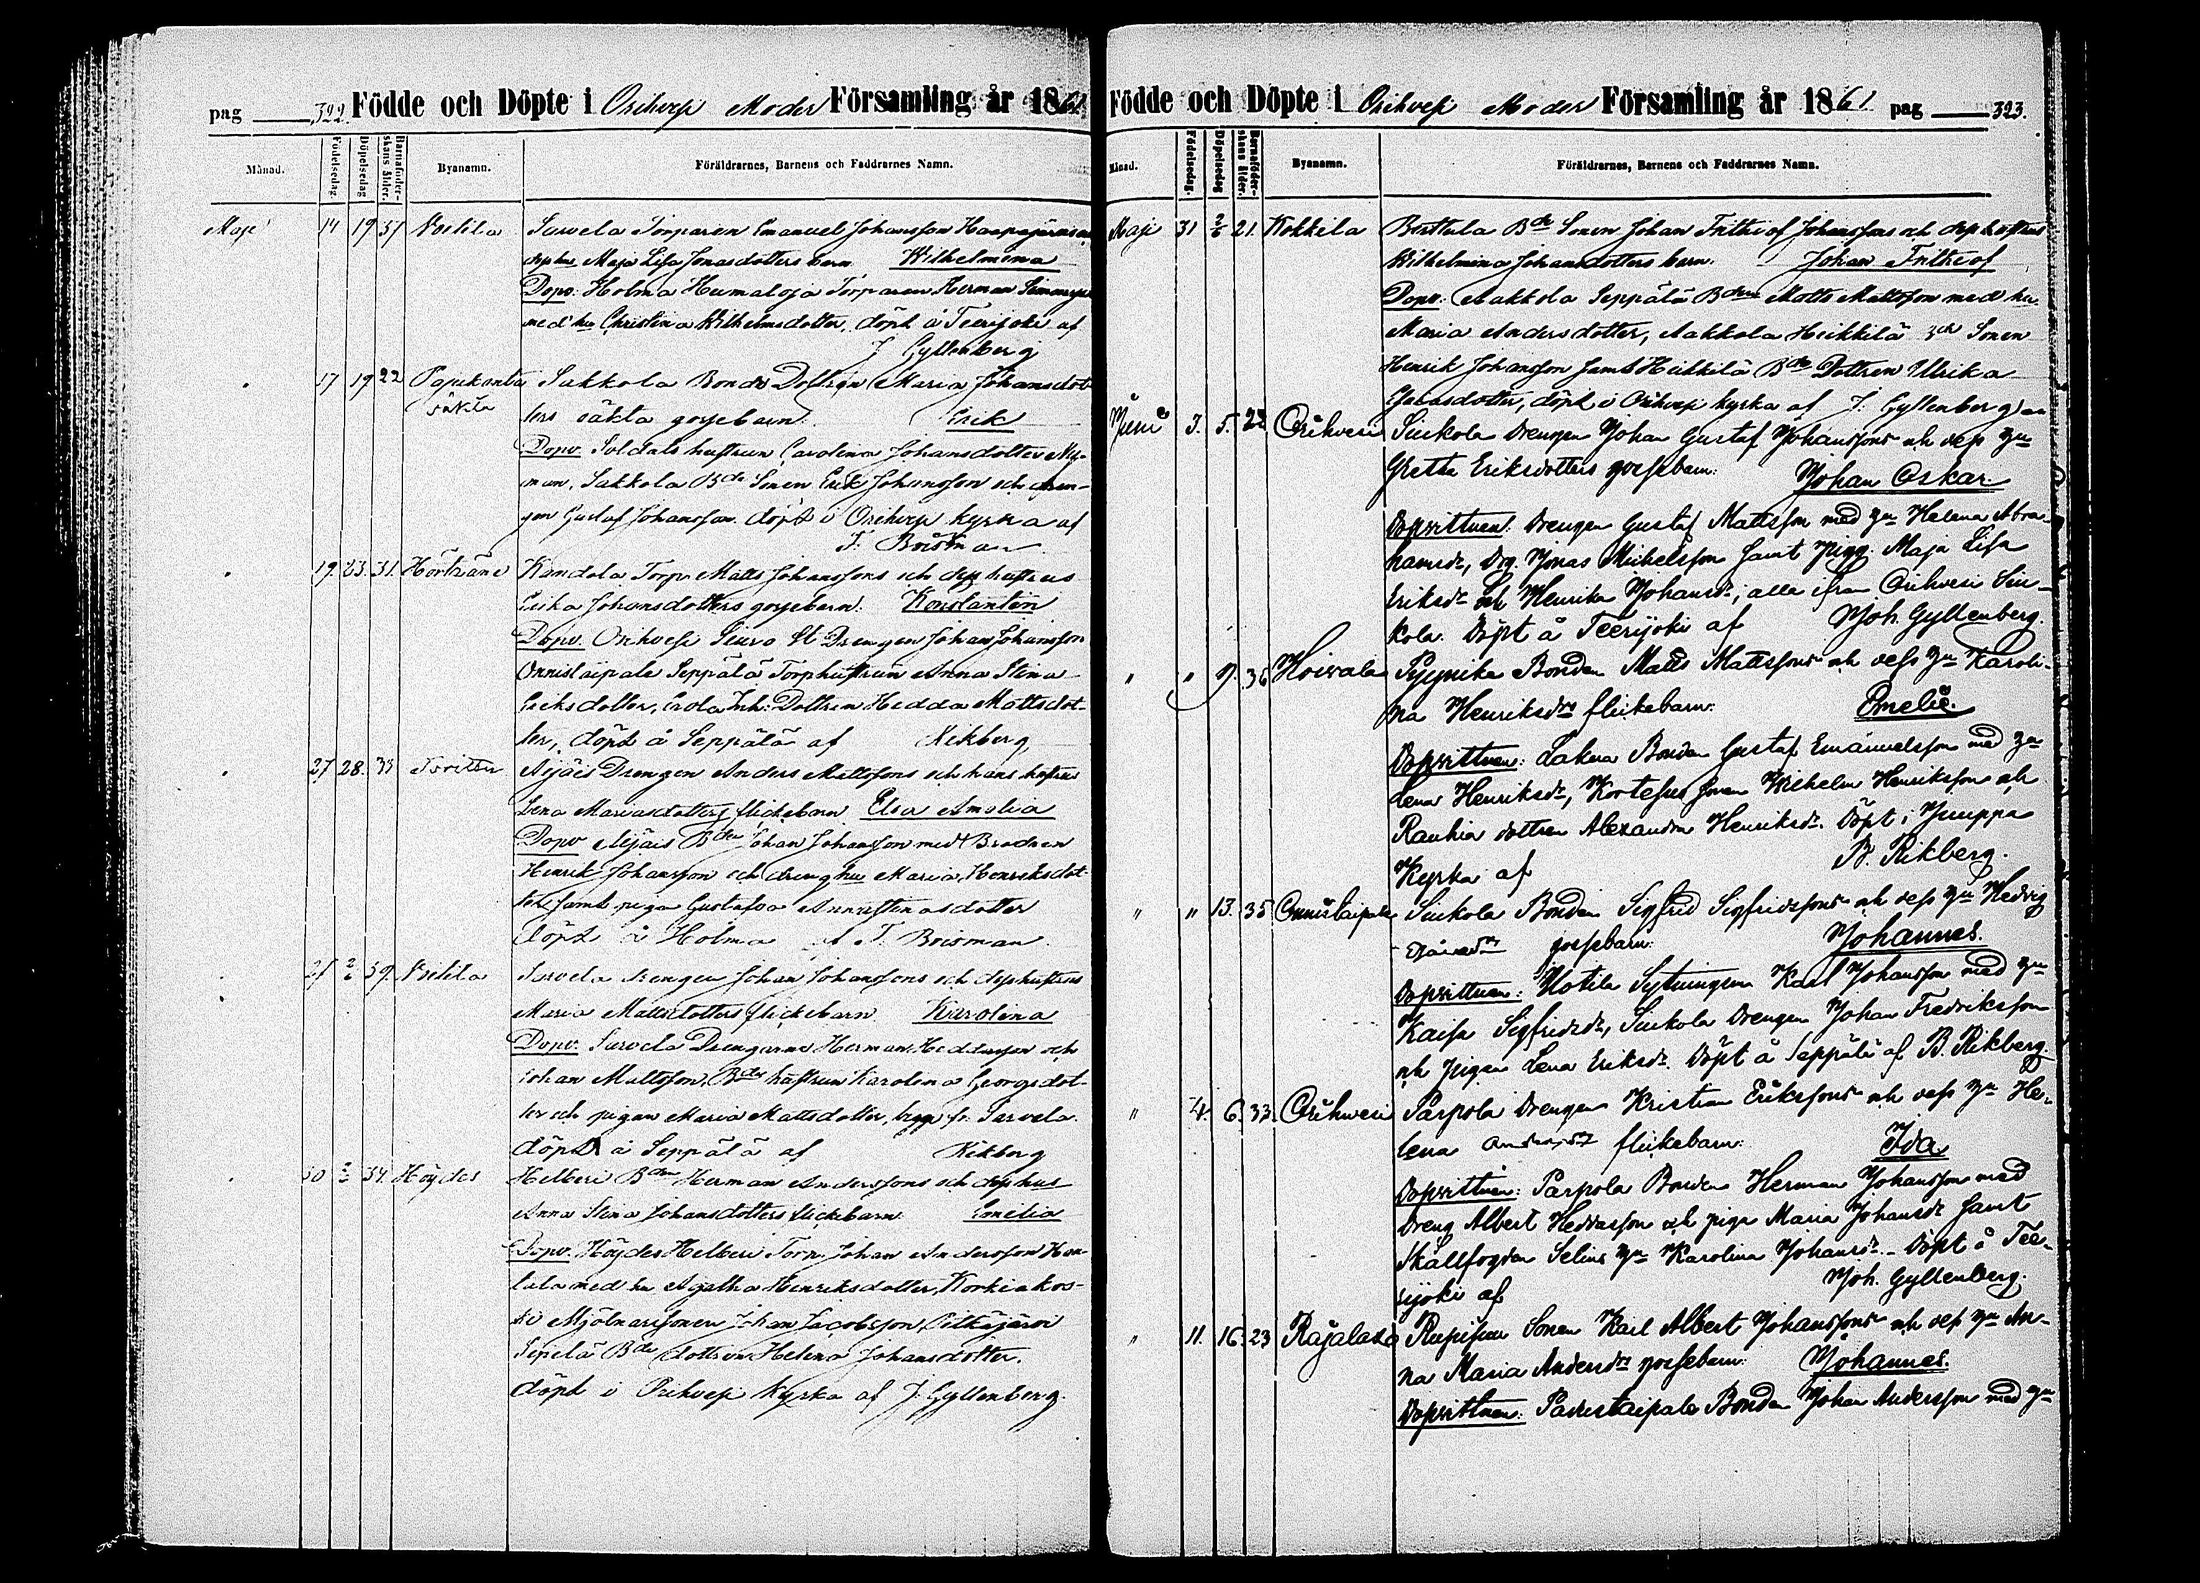 pag 322. Födde och Döpte i Orihvesi Moder Församling år 1861.
Månad. Födelsedag Döpelsedag Barnaföderskans ålder. Byanamn. Föräldrarnes, Barnens och Faddrarnes Namn.
Maji 14 19 37 Voitila Sarvela Torparen Emanuel Johansson
dess hu Maja Lisa Jonasdotters barn Wilhelmina
Dopv: Holma Humaloja Torparen Herman
med hu Christina Wilhelmsdotter, döpt å Teerijoki af
J Gyllenberg
17 19 22 Pajukanta Sakkola Bonde Dottren Maria Johansdot-
oäkta ters oäkta gossebarn Erik
Dopv. Soldats hustrun Carolina Johansdotter Ny-
man, Sakkola Bde Sonen Erik Johansson och dren-
gen Gustaf Johansson. döpt i Orihvesi kyrka af
T. Broisman
19. 23. 31. Kandola Torp. Matts Johanssons och dess hustrus
Erika Johansdotters gossebarn. Konstantin
Dopv. Orihvesi Drengen Johan Johansson
Onnistaipale Seppälä Torphustrun Anna Stina
Eriksdotter, Dottren Hedda Mattsdot-
ter, döpt å Seppälä af Rikberg
27 28. 33 Äijäis Drengen Anders Mattssons och hans hustrus
Lena Mariasdotters flickebarn Elsa Amalia
Dopv Äijäis Bden Johan Johansson med Brodren
Henrik Johansson och dreng hu Maria Henriksdot-
ter samt piga Gustafva Annastinasdotter
döpt å Holma af T. Broisman
27 2/6 39. Voitila Sarvela drengen Johan Johanssons och dess hustrus
Maria Mattsdotters flickebarn Karolina
Dopv. Sarvela Drengarne Herman och
Johan Mattsson, Bdes hustrun Karolina Georgsdot-
ter och pigan Maria Mattsdotter, fr. Sarvela.
döpt å Seppälä af Rikberg
30 2/6 34. Höydes Helberi Bden Herman Anderssons och dess hus
Anna Stina Johansdotters flickebarn Emelia
Dopv. Höydes Helberi Torp. Johan Andersson
med hu Agatha Henriksdotter, Korkiakos-
ki Mjölnaresonen Johan Jacobsson, Pitkäjärvi
Sepälä Bde dottren Helena Johansdotter.
döpt i Orihvesi kyrka af J. Gyllenberg.
Födde och Döpte i Orihvesi Moder Församling år 1861. pag 323.
Månad. Födelsedag. Döpelsedag Barnaföderskans ålder. Byanamn. Föräldrarnes, Barnens och Faddrarnes Namn.
Maji 31 2/6 21. Kokkila Bde Sonen Johan Frithiof Johanssons och dess hustrus
Wilhelmina Johansdotters barn. Johan Frithiof
Dopv. Aakkola Seppälä Bden Matts Mattsson med hu
Maria Andersdotter, Aakkola Heikkilä Sonen
Henrik Johansson samt Heikkilä Bde Dottren Ulrika
Jonasdotter, döpt i Orihvesi kyrka af J: Gyllenberg
Juni 3. 5. 22 Orihvesi Siukola drengen Johan Gustaf Johanssons och dess hu
Gretha Eriksdotters gossebarn: Johan Oskar.
Dopvittnen: drengen Gustaf Mattsson med hu Helena Abra-
hamsdr, drg. Jonas Mickelsson samt pigg. Maja Lisa
Eriksdr och Henrika Johansdr, alla ifrån Orihvesi Siu-
kola. Döpt å Teerijoki af Joh. Gyllenberg.
" " 9. 36 Koivala Pyynike Bonden Matts Mattssons och dess hu Karoli-
na Henriksdrs flickebarn: Emelie.
Dopvittnen: Lakera Bonden Gustaf Emanuelsson med hu
Lena Henriksdr, Kortesus sonen Wilhelm Henriksson och
Rauhia dottren Alexandra Henriksdr. Döpt i Juuppa
Kyrka af B. Rikberg.
" " 13. 35 Onnistaipale Siukola Bonden Sigfrid Sigfridssons och dess hu Hedvig
gossebarn: Johannes.
Dopvittnen: Uotila Sytningen Karl Johansson med hu
Kaisa Sigfridsdr, Siukola drengen Johan Fredriksson
och pigan Lena Eriksdr. Döpt å Seppälä af B. Rikberg.
" 4. 6. 33. Orihvesi Parpola drengen Kristian Erikssons och dess hu He-
lena flickebarn: Ida
Dopvittnen: Parpola Bonden Herman Johansson med
dreng Albert Heddasson och piga Maria Johansdr samt
Skallfogden Selins hu Karolina Johansdr. - Döpt å Tee-
rijoki af Joh. Gyllenberg.
" 11. 16. 23 Rajalaks Sonen Karl Albert Johanssons och dess hu An-
na Maria Andersdrs gossebarn: Johannes.
Dopvittnen: Pavustaipale Bonden Johan Andersson med hu